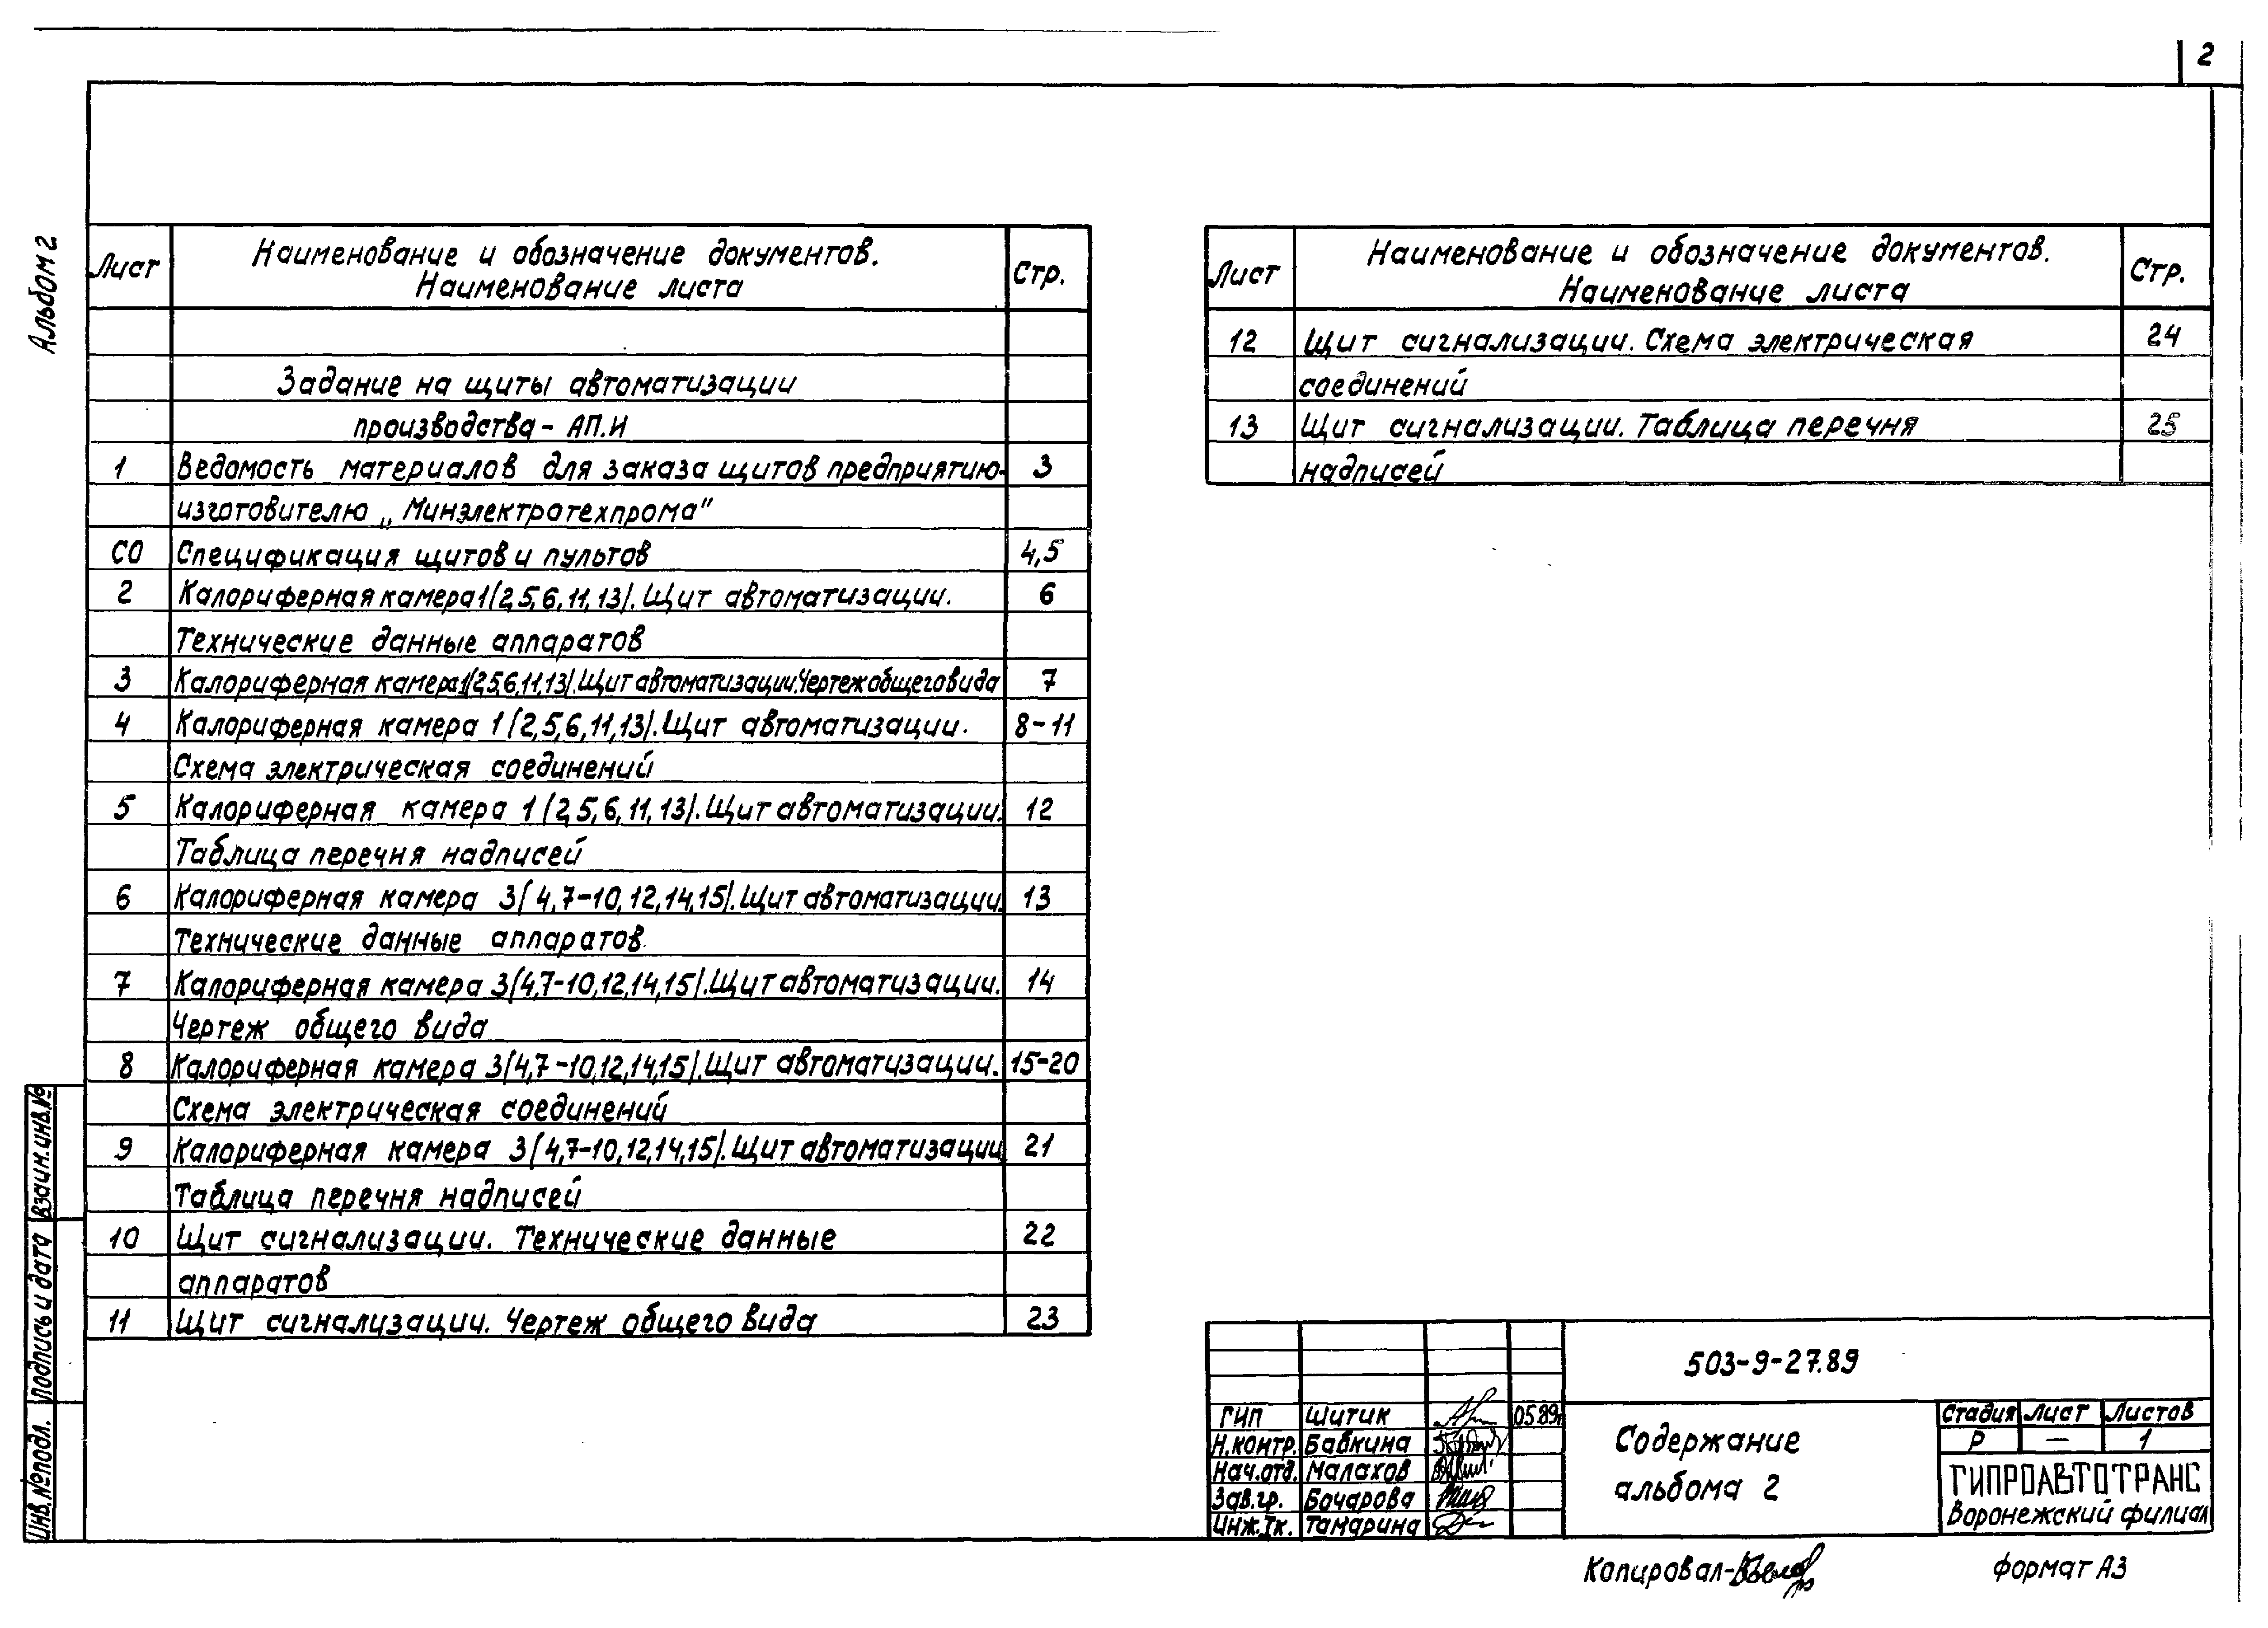 2
Альбом 2
Лист Наименование и обозначение документов. Наименование листа Стр.
Задание на щиты автоматизации
производства - АП.И
1 Ведомость материалов для заказа щитов предприятию- 3
изготовителю „Минэлектротехпрома"
СО Спецификация щитов и пультов 4,5
2 Калориферная камера 1(2,5,6,11,13). Щит автоматизации. 6
Технические данные аппаратов
3 Калориферная камера 1(2,5,6,11,13). Щит автоматизации. Чертеж общего вида 7
4 Калориферная камера 1(2,5,6,11,13). Щит автоматизации. 8-11
Схема электрическая соединений
5 Калориферная камера 1(2,5,6,11,13). Щит автоматизации. 12
Таблица перечня надписей
6 Калориферная камера 3(4,7-10,12,14,15). Щит автоматизации. 13
Технические данные аппаратов.
7 Калориферная камера 3(4,7-10,12,14,15). Щит автоматизации. 14
Чертеж общего вида
8 Калориферная камера 3(4,7-10,12,14,15). Щит автоматизации. 15-20
Схема электрическая соединений
9 Калориферная камера 3(4,7-10,12,14,15). Щит автоматизации 21
Таблица перечня надписей
10 Щит сигнализации. Технические данные 22
аппаратов
11 Щит сигнализации. Чертеж общего вида 23
Лист Наименование и обозначение документов. Наименование листа Стр.
12 Щит сигнализации. Схема электрическая 24
соединений
13 Щит сигнализации. Таблица перечня 25
надписей
503-9-27.89
ГИП Шитик 05.89г
Н.контр. Бабкина
Нач.отд. Малахов
Зав.гр. Бочарова
Инж.Iк. Тамарина
Содержание
альбома 2
Стадия Лист Листов
Р — 1
ГИПРОАВТОТРАНС
Воронежский филиал
Копировал-
формат А3
Взаим.инв.№
Подпись и дата
Инв.№подл.